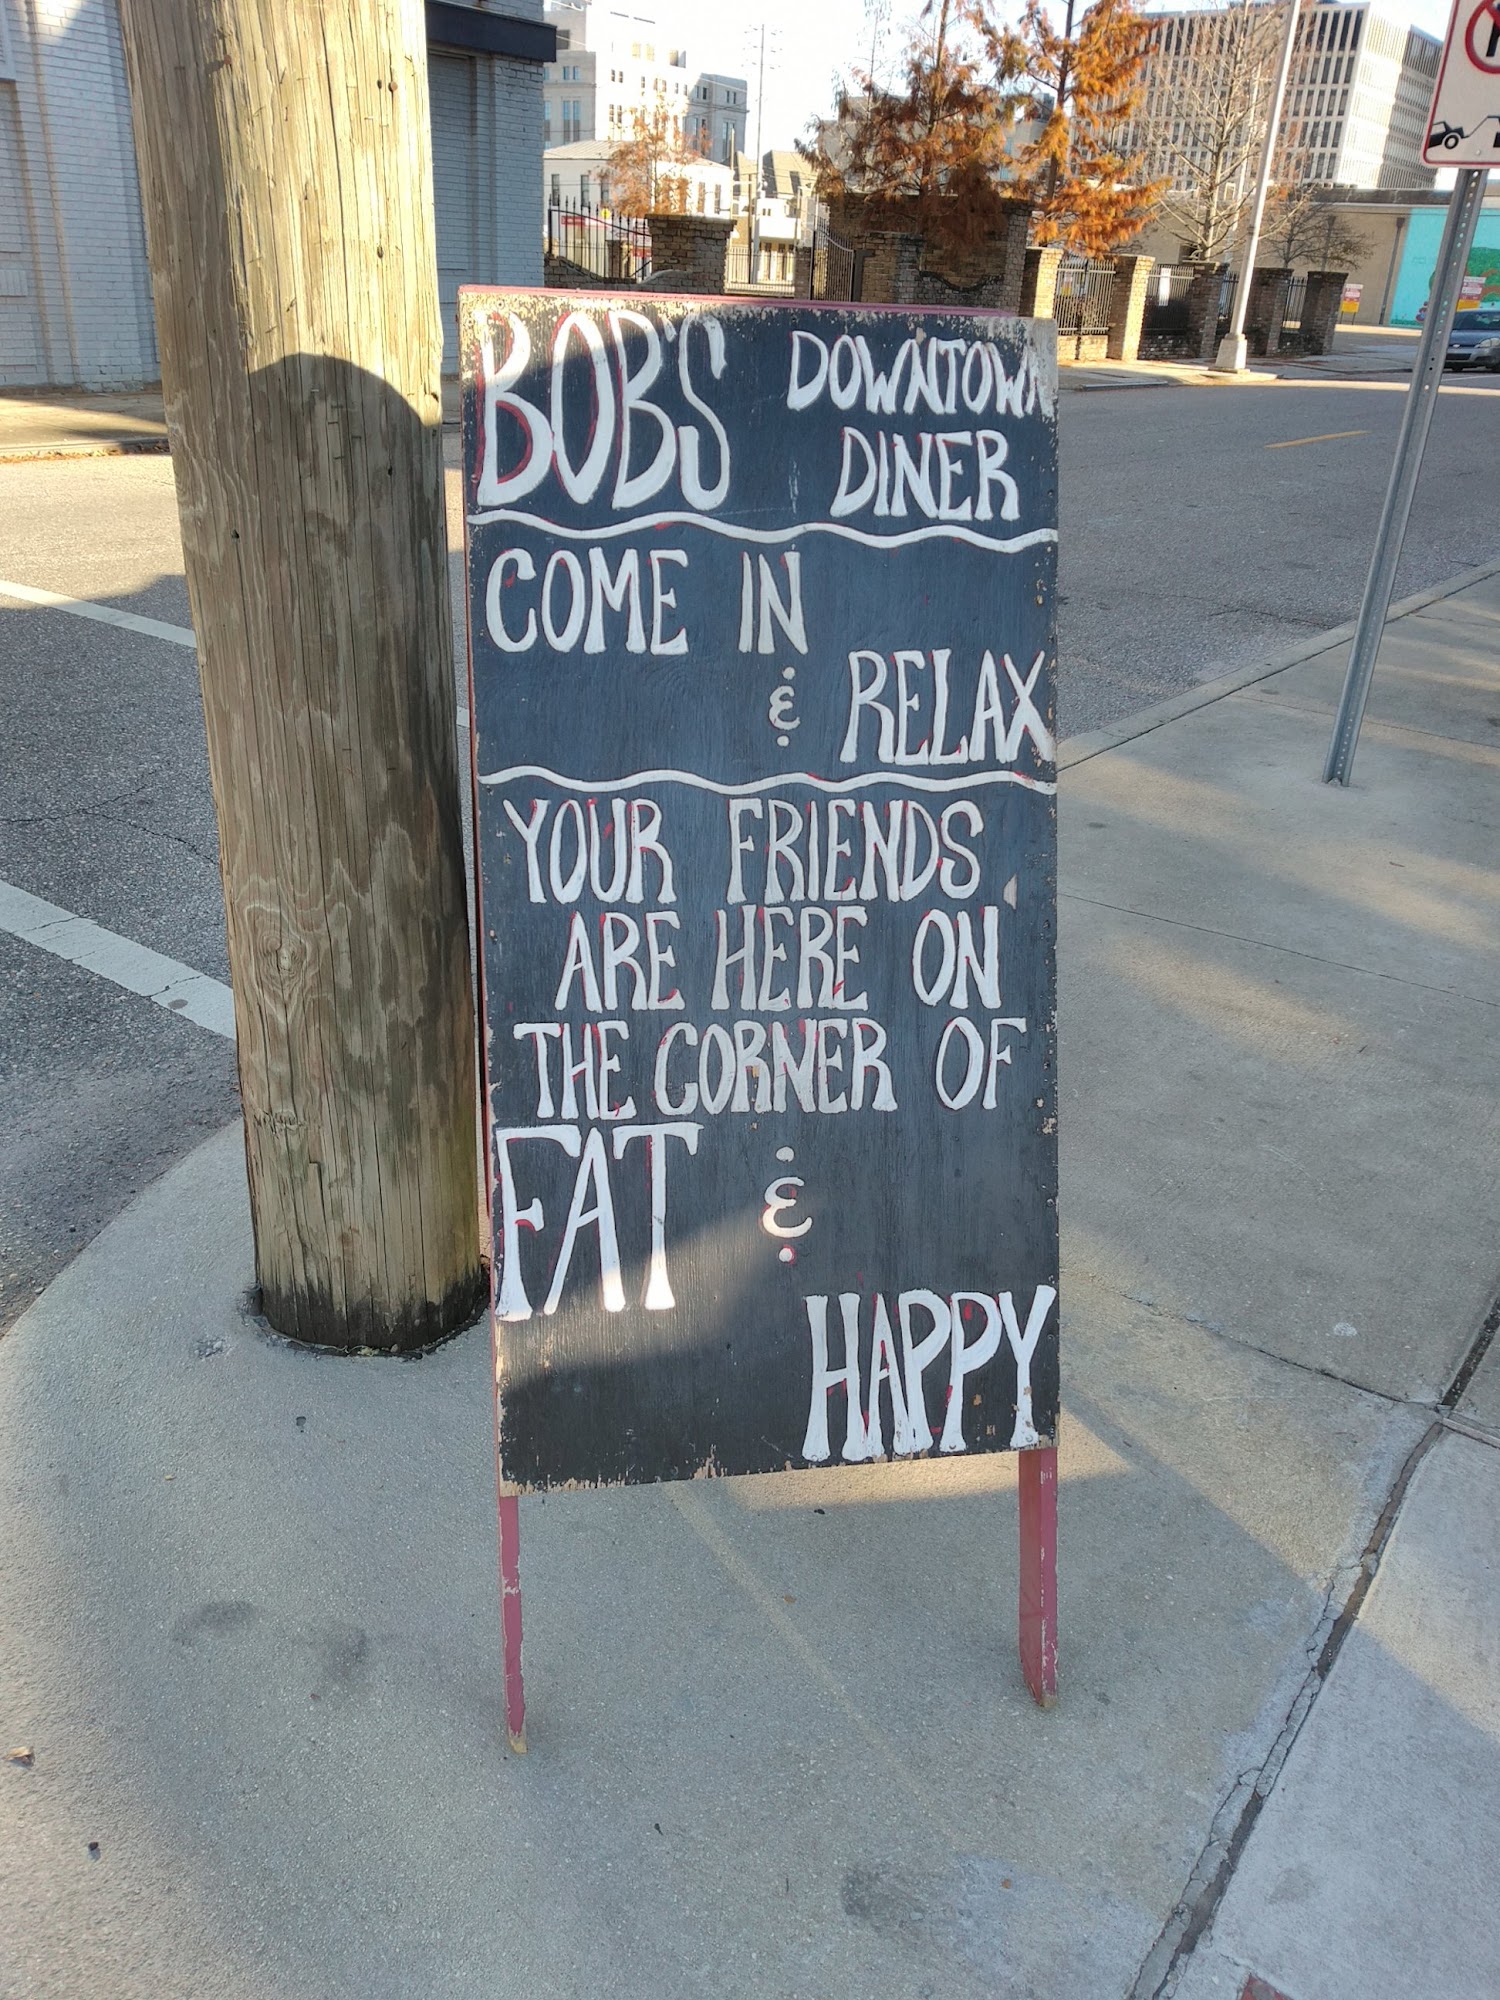 BOB'S DOWNTOWN
DINER
COME IN
& RELAX
YOUR FRIENDS
ARE HERE ON
THE CORNER OF
FAT &
HAPPY